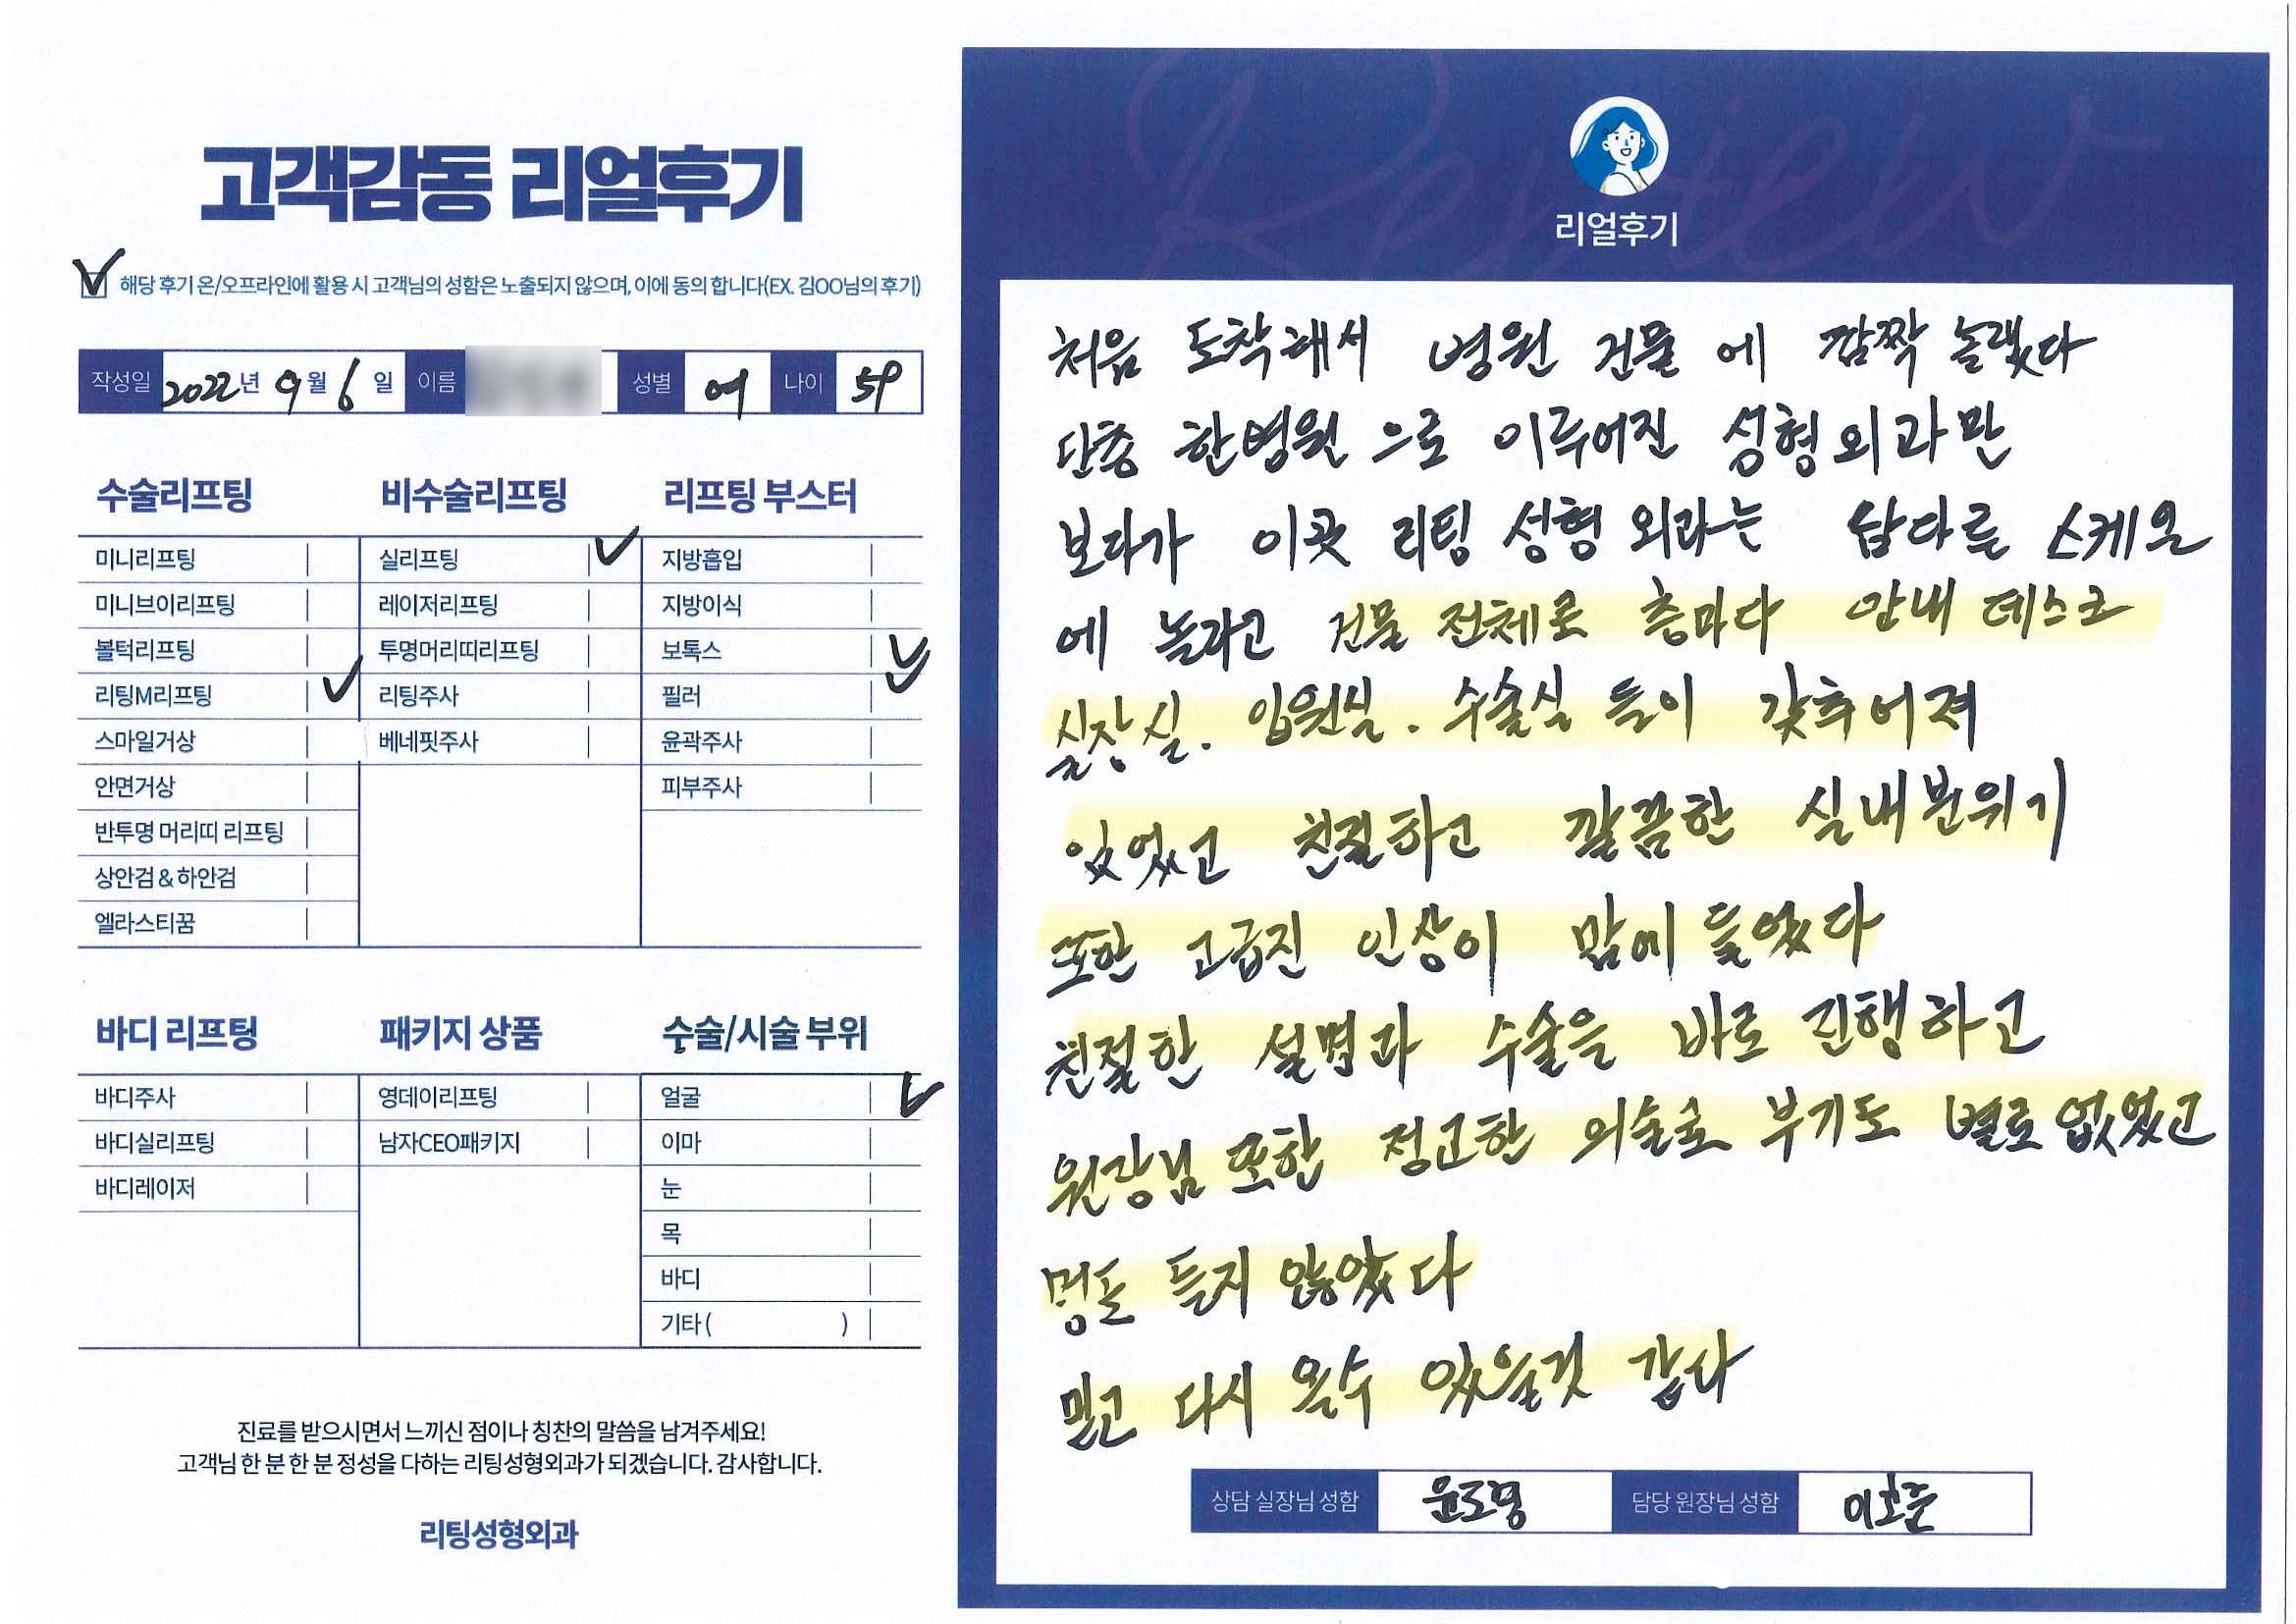 고객감동 리얼후기
해당 후기 온/오프라인에 활용 시 고객님의 성함은 노출되지 않으며, 이에 동의 합니다(EX. 김OO님의 후기)
작성일 2022년 9월 6일 이름 성별 여 나이 59
수술리프팅 비수술리프팅 리프팅 부스터
미니리프팅 실리프팅 지방흡입
미니브이리프팅 레이저리프팅 지방이식
볼턱리프팅 투명머리띠리프팅 보톡스
리팅M리프팅 리팅주사 필러
스마일거상 베네핏주사 윤곽주사
안면거상 피부주사
반투명 머리띠 리프팅
상안검 & 하안검
엘라스티꿈
바디 리프팅 패키지 상품 수술/시술 부위
바디주사 영데이리프팅 얼굴
바디실리프팅 남자CEO패키지 이마
바디레이저 눈
목
바디
기타 ( )
진료를 받으시면서 느끼신 점이나 칭찬의 말씀을 남겨주세요!
고객님 한 분 한 분 정성을 다하는 리팅성형외과가 되겠습니다. 감사합니다.
리팅성형외과
Review
리얼후기
처음 도착해서 병원 건물 에 깜짝 놀랬다
단층 한병원 으로 이루어진 성형외과만
보다가 이곳 리팅 성형 외과는 남다른 스케일
에 놀라고 건물 전체로 층마다 안내 데스크
실장실. 입원실. 수술실 등이 갖추어져
있었고 친절하고 깔끔한 실내분위기
또한 고급진 인상이 맘에 들었다
친절한 설명과 수술을 바로 진행하고
원장님 또한 정교한 의술로 부기도 별로 없었고
멍도 들지 않았다
믿고 다시 올수 있을것 같다
상담 실장님 성함 윤도영 담당 원장님 성함 이호준